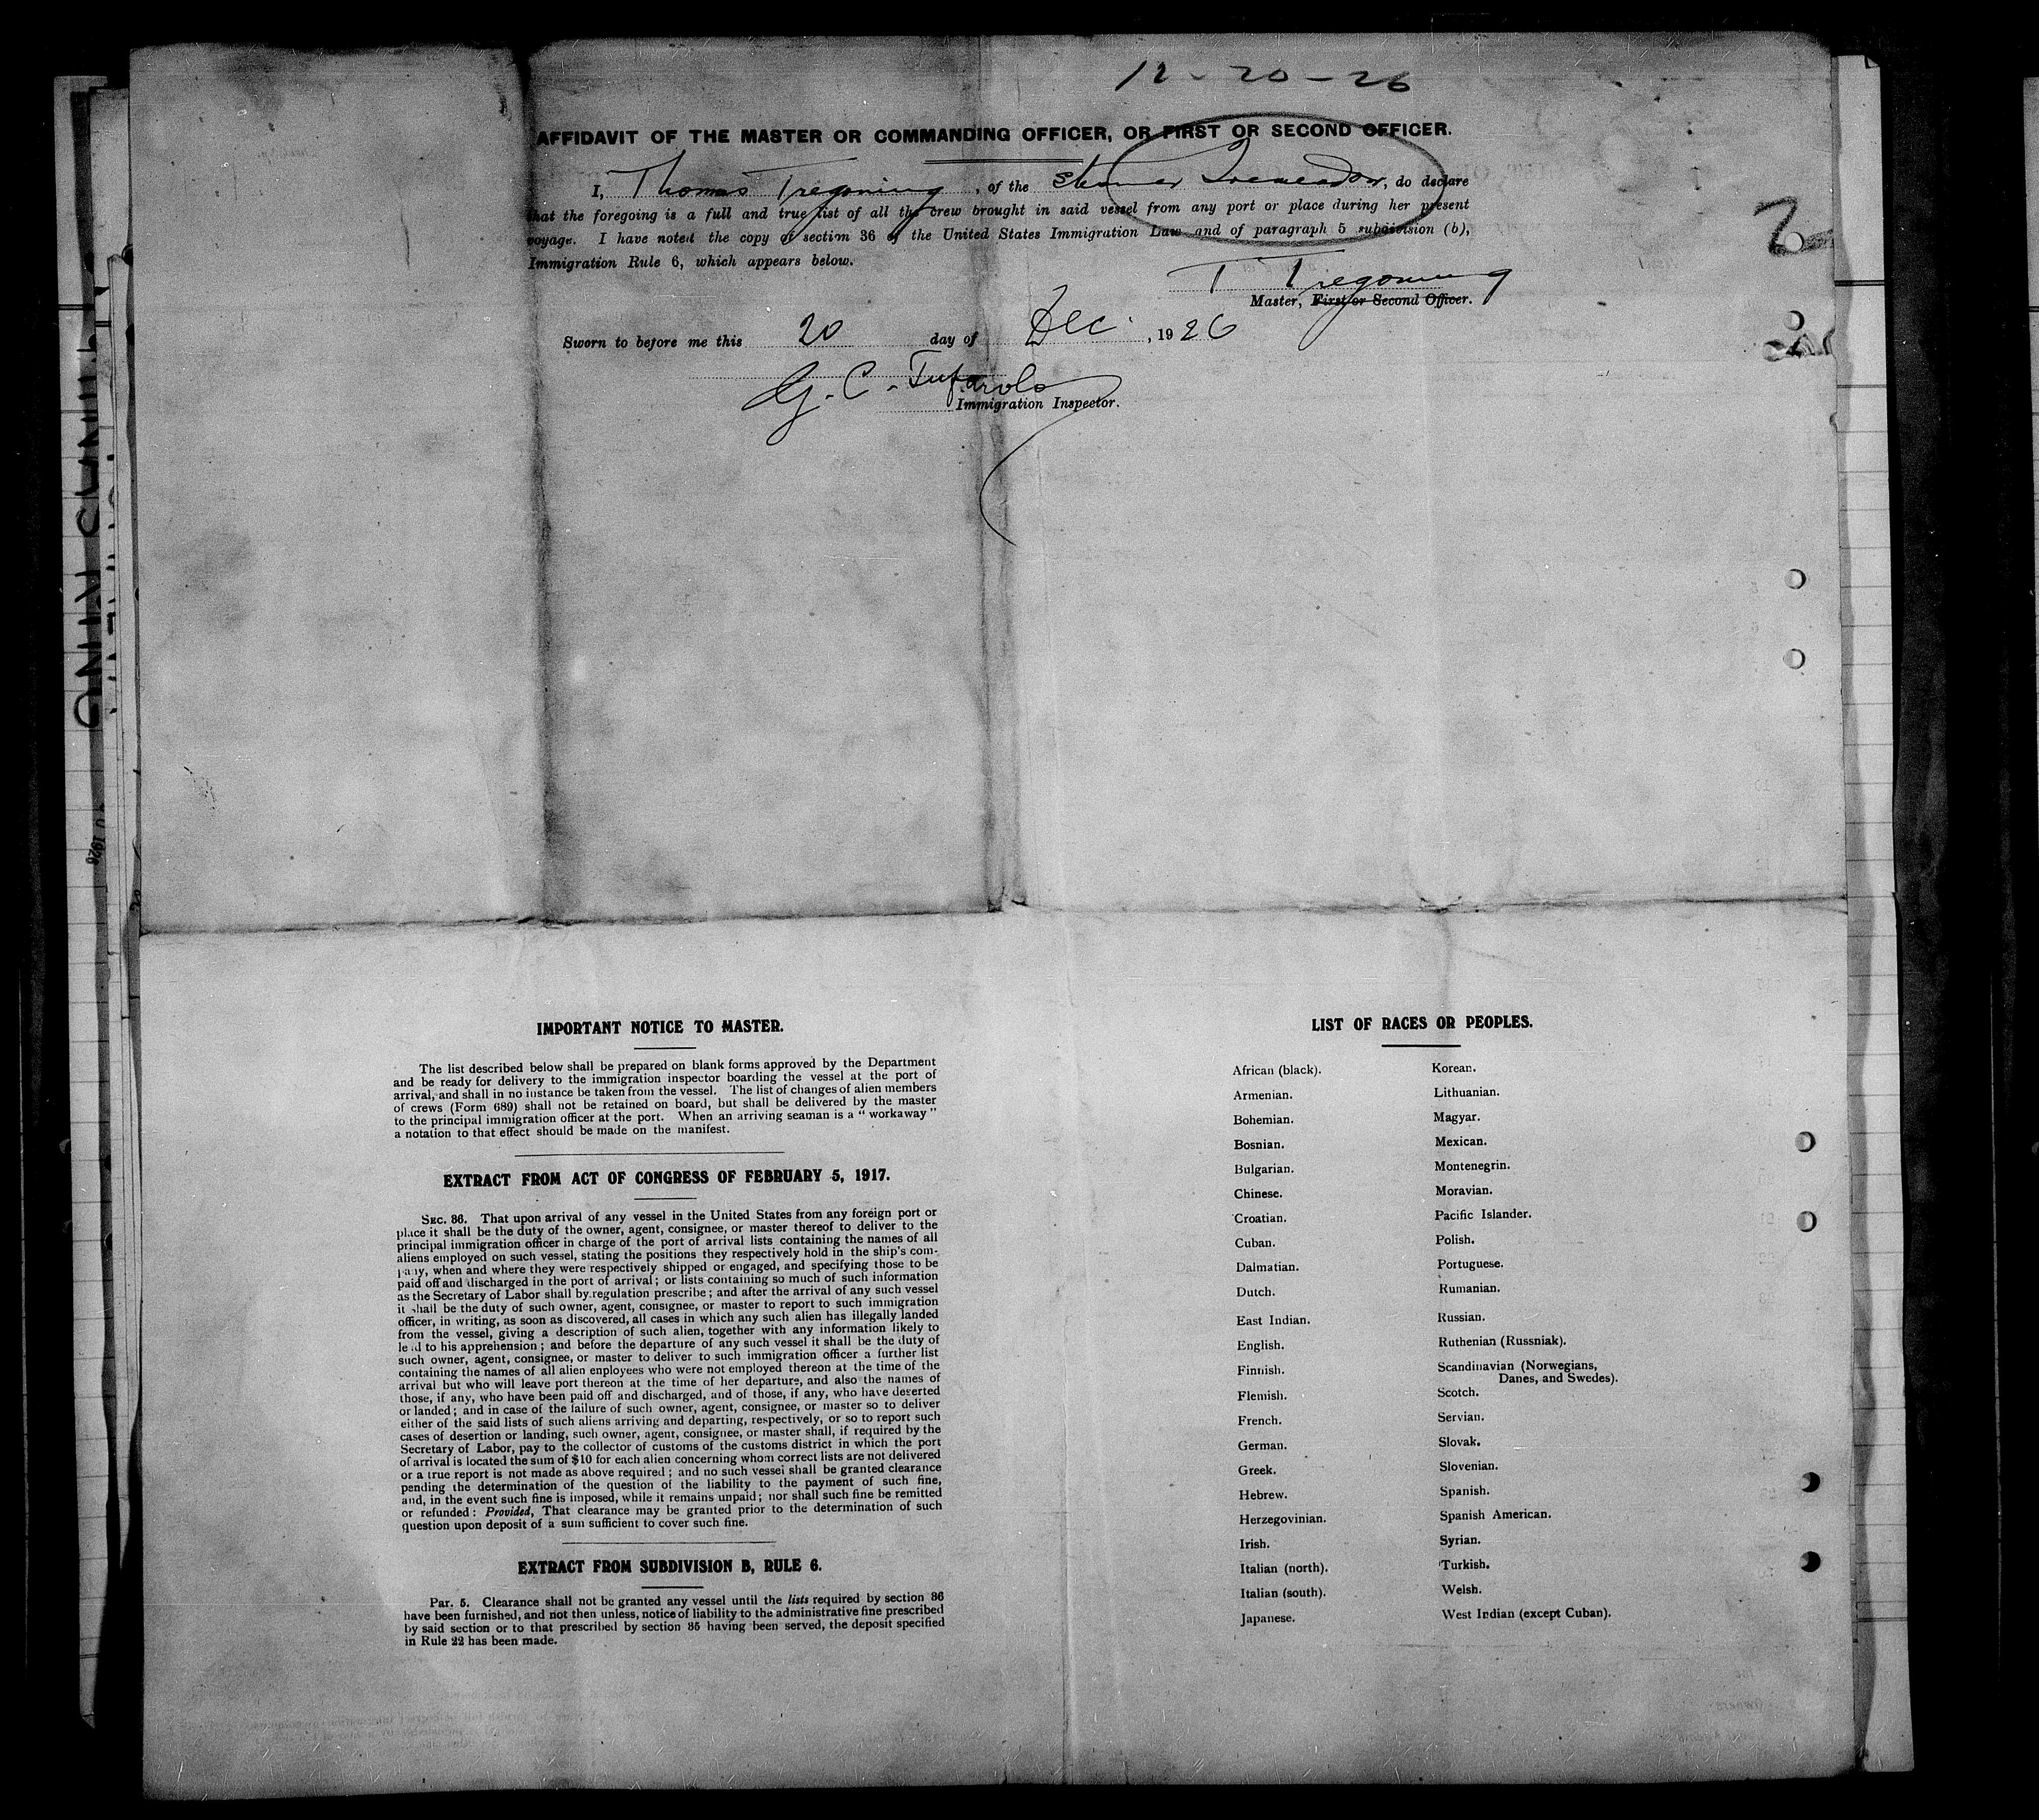 12-20-26
AFFIDAVIT OF THE MASTER OR COMMANDING OFFICER, OR FIRST OR SECOND OFFICER.
I, Thomas Tregoning, of the Steamer Tremeadow, do declare
that the foregoing is a full and true list of all the crew brought in said vessel from any port or place during her present
voyage. I have noted the copy of section 36 of the United States Immigration Law and of paragraph 5 subdivision (b),
Immigration Rule 6, which appears below.
T Tregoning
Master, First or Second Officer.
Sworn to before me this 20 day of Dec. , 1926
G. C.
Immigration Inspector.
2
IMPORTANT NOTICE TO MASTER.
The list described below shall be prepared on blank forms approved by the Department
and be ready for delivery to the immigration inspector boarding the vessel at the port of
arrival, and shall in no instance be taken from the vessel. The list of changes of alien members
of crews (Form 689) shall not be retained on board, but shall be delivered by the master
to the principal immigration officer at the port. When an arriving seaman is a "workaway"
a notation to that effect should be made on the manifest.
EXTRACT FROM ACT OF CONGRESS OF FEBRUARY 5, 1917.
SEC. 36. That upon arrival of any vessel in the United States from any foreign port or
place it shall be the duty of the owner, agent, consignee, or master thereof to deliver to the
principal immigration officer in charge of the port of arrival lists containing the names of all
aliens employed on such vessel, stating the positions they respectively hold in the ship's com-
pany, when and where they were respectively shipped or engaged, and specifying those to be
paid off and discharged in the port of arrival; or lists containing so much of such information
as the Secretary of Labor shall by regulation prescribe; and after the arrival of any such vessel
it shall be the duty of such owner, agent, consignee, or master to report to such immigration
officer, in writing, as soon as discovered, all cases in which any such alien has illegally landed
from the vessel, giving a description of such alien, together with any information likely to
lead to his apprehension; and before the departure of any such vessel it shall be the duty of
such owner, agent, consignee, or master to deliver to such immigration officer a further list
containing the names of all alien enployees who were not employed thereon at the time of the
arrival but who will leave port thereon at the time of her departure, and also the names of
those, if any, who have been paid off and discharged, and of those, if any, who have deserted
or landed; and in case of the failure of such owner, agent, consignee, or master so to deliver
either of the said lists of such aliens arriving and departing, respectively, or so to report such
cases of desertion or landing, such owner, agent, consignee, or master shall, if required by the
Secretary of Labor, pay to the collector of customs of the customs district in which the port
of arrival is located the sum of $10 for each alien concerning whom correct lists are not delivered
or a true report is not made as above required; and no such vessel shall be granted clearance
pending the determination of the question of the liability to the payment of such fine,
and, in the event such fine is imposed, while it remains unpaid; nor shall such fine be remitted
or refunded: Provided, That clearance may be granted prior to the determination of such
question upon deposit of a sum sufficient to cover such fine.
EXTRACT FROM SUBDIVISION B, RULE 6.
PAR. 5. Clearance shall not be granted any vessel until the lists required by section 36
have been furnished, and not then unless, notice of liability to the administrative fine prescribed
by said section or to that prescribed by section 35 having been served, the deposit specified
in Rule 22 has been made.
LIST OF RACES OR PEOPLES.
African (black).
Armenian.
Bohemian.
Bosnian.
Bulgarian.
Chinese.
Croatian.
Cuban.
Dalmatian.
Dutch.
East Indian.
English.
Finnish.
Flemish.
French.
German.
Greek.
Hebrew.
Herzegovinian.
Irish.
Italian (north).
Italian (south).
Japanese.
Korean.
Lithuanian.
Magyar.
Mexican.
Montenegrin.
Moravian.
Pacific Islander.
Polish.
Portuguese.
Rumanian.
Russian.
Ruthenian (Russniak).
Scandinavian (Norwegians,
Danes, and Swedes).
Scotch.
Servian.
Slovak.
Slovenian.
Spanish.
Spanish American.
Syrian.
Turkish.
Welsh.
West Indian (except Cuban).